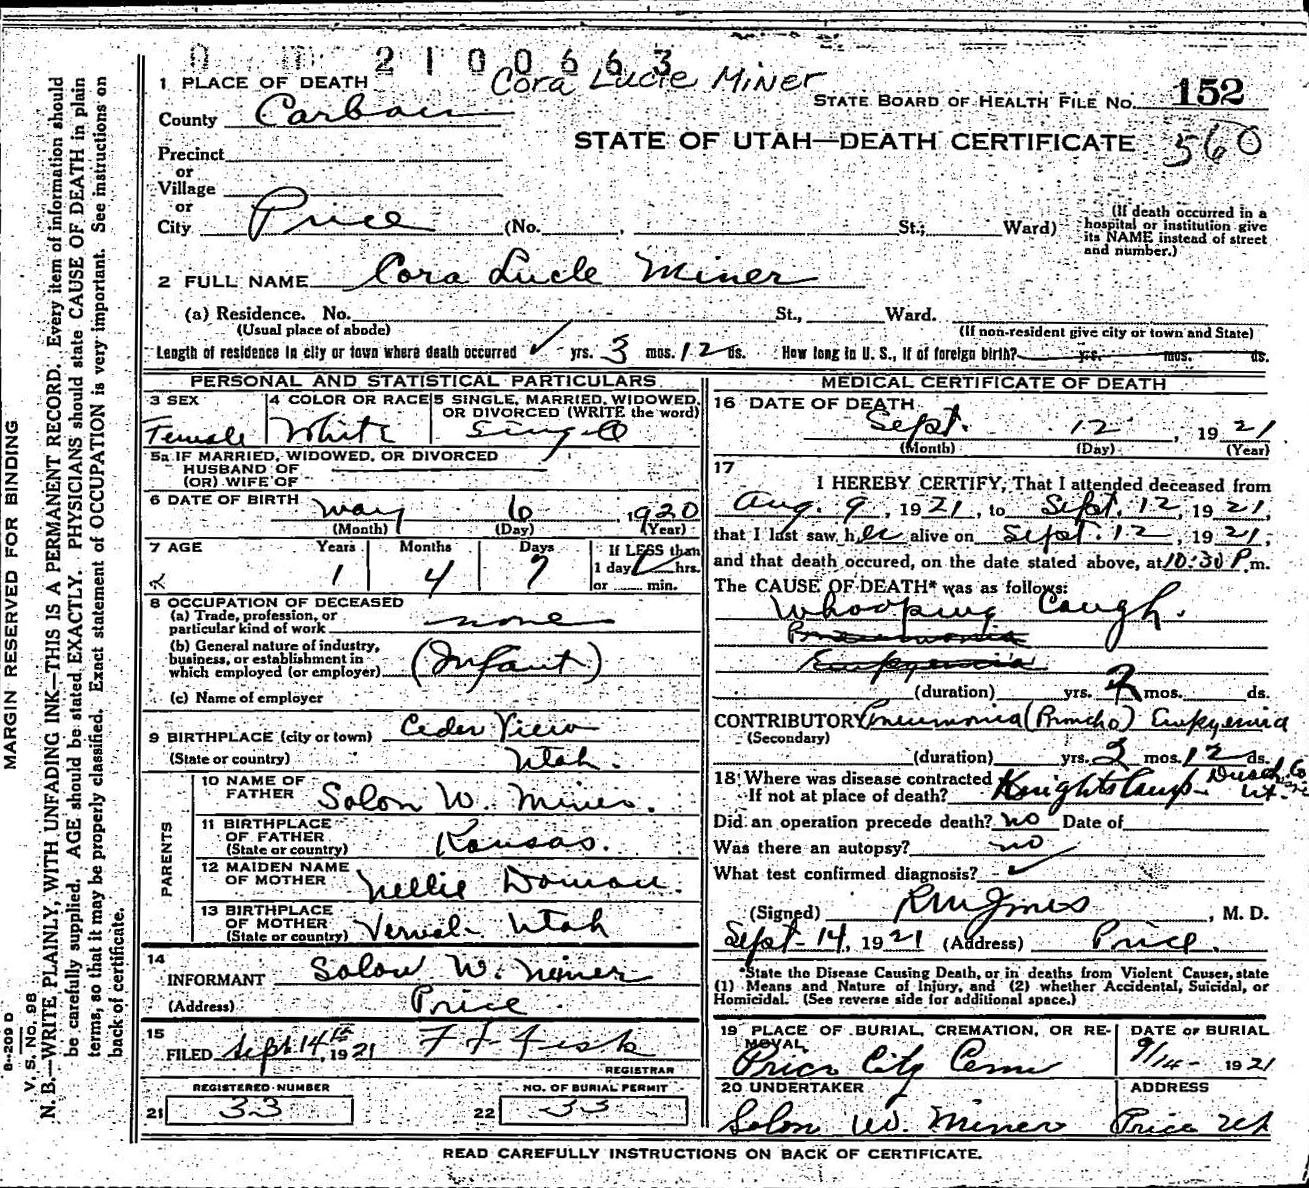 2100663
Cora Lucie Miner
1 PLACE OF DEATH
STATE BOARD OF HEALTH FILE NO. 152
County Carbon
STATE OF UTAH—DEATH CERTIFICATE 560
Precinct
or
Village
or
City Price (No. , St.; Ward)
(If death occurred in a hospital or institution give its NAME instead of street and number.)
2 FULL NAME Cora Lucie Miner
(a) Residence. No. St., Ward.
(Usual place of abode) (If non-resident give city or town and State)
Length of residence in city or town where death occurred ✓ yrs. 3 mos. 12 ds. How long in U. S., if of foreign birth? yrs. mos. ds.
PERSONAL AND STATISTICAL PARTICULARS
3 SEX Female
4 COLOR OR RACE White
5 SINGLE, MARRIED, WIDOWED, OR DIVORCED (WRITE the word) Single
5a IF MARRIED, WIDOWED, OR DIVORCED
HUSBAND OF
(OR) WIFE OF
6 DATE OF BIRTH May 6, 1920
(Month) (Day) (Year)
7 AGE Years Months Days If LESS than
1 4 7 1 day hrs.
or min.
8 OCCUPATION OF DECEASED
(a) Trade, profession, or particular kind of work none
(b) General nature of industry, business, or establishment in which employed (or employer) (Infant)
(c) Name of employer
9 BIRTHPLACE (city or town) Ceder View
(State or country) Utah.
PARENTS
10 NAME OF FATHER Solon W. Miner.
11 BIRTHPLACE OF FATHER (State or country) Kansas.
12 MAIDEN NAME OF MOTHER Nellie
13 BIRTHPLACE OF MOTHER (State or country) Vernal- Utah
14 INFORMANT Solon W. Miner
(Address) Price.
15 FILED Sept 14th, 1921 F F Fisk
REGISTRAR
REGISTERED NUMBER NO. OF BURIAL PERMIT
21 33 22 33
MEDICAL CERTIFICATE OF DEATH
16 DATE OF DEATH
Sept. 12, 1921
(Month) (Day) (Year)
17 I HEREBY CERTIFY, That I attended deceased from
Aug. 9, 1921, to Sept. 12, 1921,
that I last saw her alive on Sept. 12, 1921,
and that death occured, on the date stated above, at 10:30 P.m.
The CAUSE OF DEATH* was as follows:
Whooping Cough.
Pneumonia
Empyemia
(duration) yrs. 2 mos. ds.
CONTRIBUTORY Pneumonia (Broncho) Empyemia
(Secondary)
(duration) yrs. 2 mos. 12 ds.
18 Where was disease contracted
If not at place of death? Knights Camp- Duch. Co Ut.
Did an operation precede death? no Date of
Was there an autopsy? no
What test confirmed diagnosis? ✓
(Signed) , M. D.
Sept-14, 1921 (Address) Price.
*State the Disease Causing Death, or in deaths from Violent Causes, state
(1) Means and Nature of Injury, and (2) whether Accidental, Suicidal, or
Homicidal. (See reverse side for additional space.)
19 PLACE OF BURIAL, CREMATION, OR REMOVAL DATE OF BURIAL
Price City Cem 9/14- 1921
20 UNDERTAKER ADDRESS
Solon W. Miner Price Ut
READ CAREFULLY INSTRUCTIONS ON BACK OF CERTIFICATE.
MARGIN RESERVED FOR BINDING
8-209 D
V. S. NO. 98
N. B.—WRITE PLAINLY, WITH UNFADING INK—THIS IS A PERMANENT RECORD. Every item of information should
be carefully supplied. AGE should be stated EXACTLY. PHYSICIANS should state CAUSE OF DEATH in plain
terms, so that it may be properly classified. Exact statement of OCCUPATION is very important. See instructions on
back of certificate.